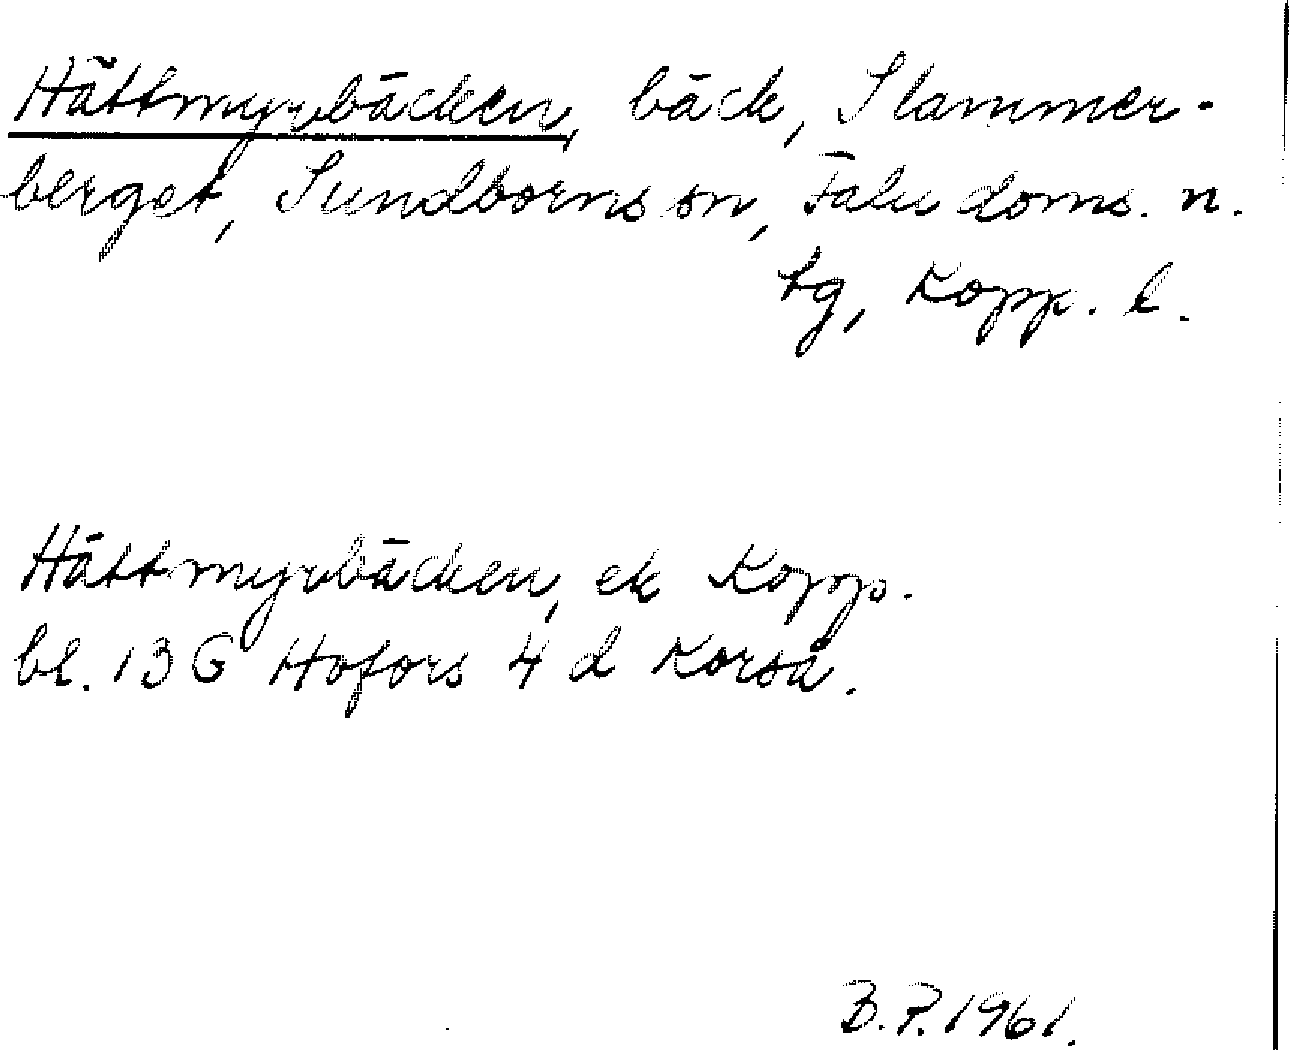 Hättmyrbäcken, bäck, Slammer-
berget, Sundborns sn, Falu doms. n.
tg, Kopp. l.
Hättmyrbäcken, ek Kopp.
bl. 13 G Hofors 4 d Korså.
B.P. 1961.